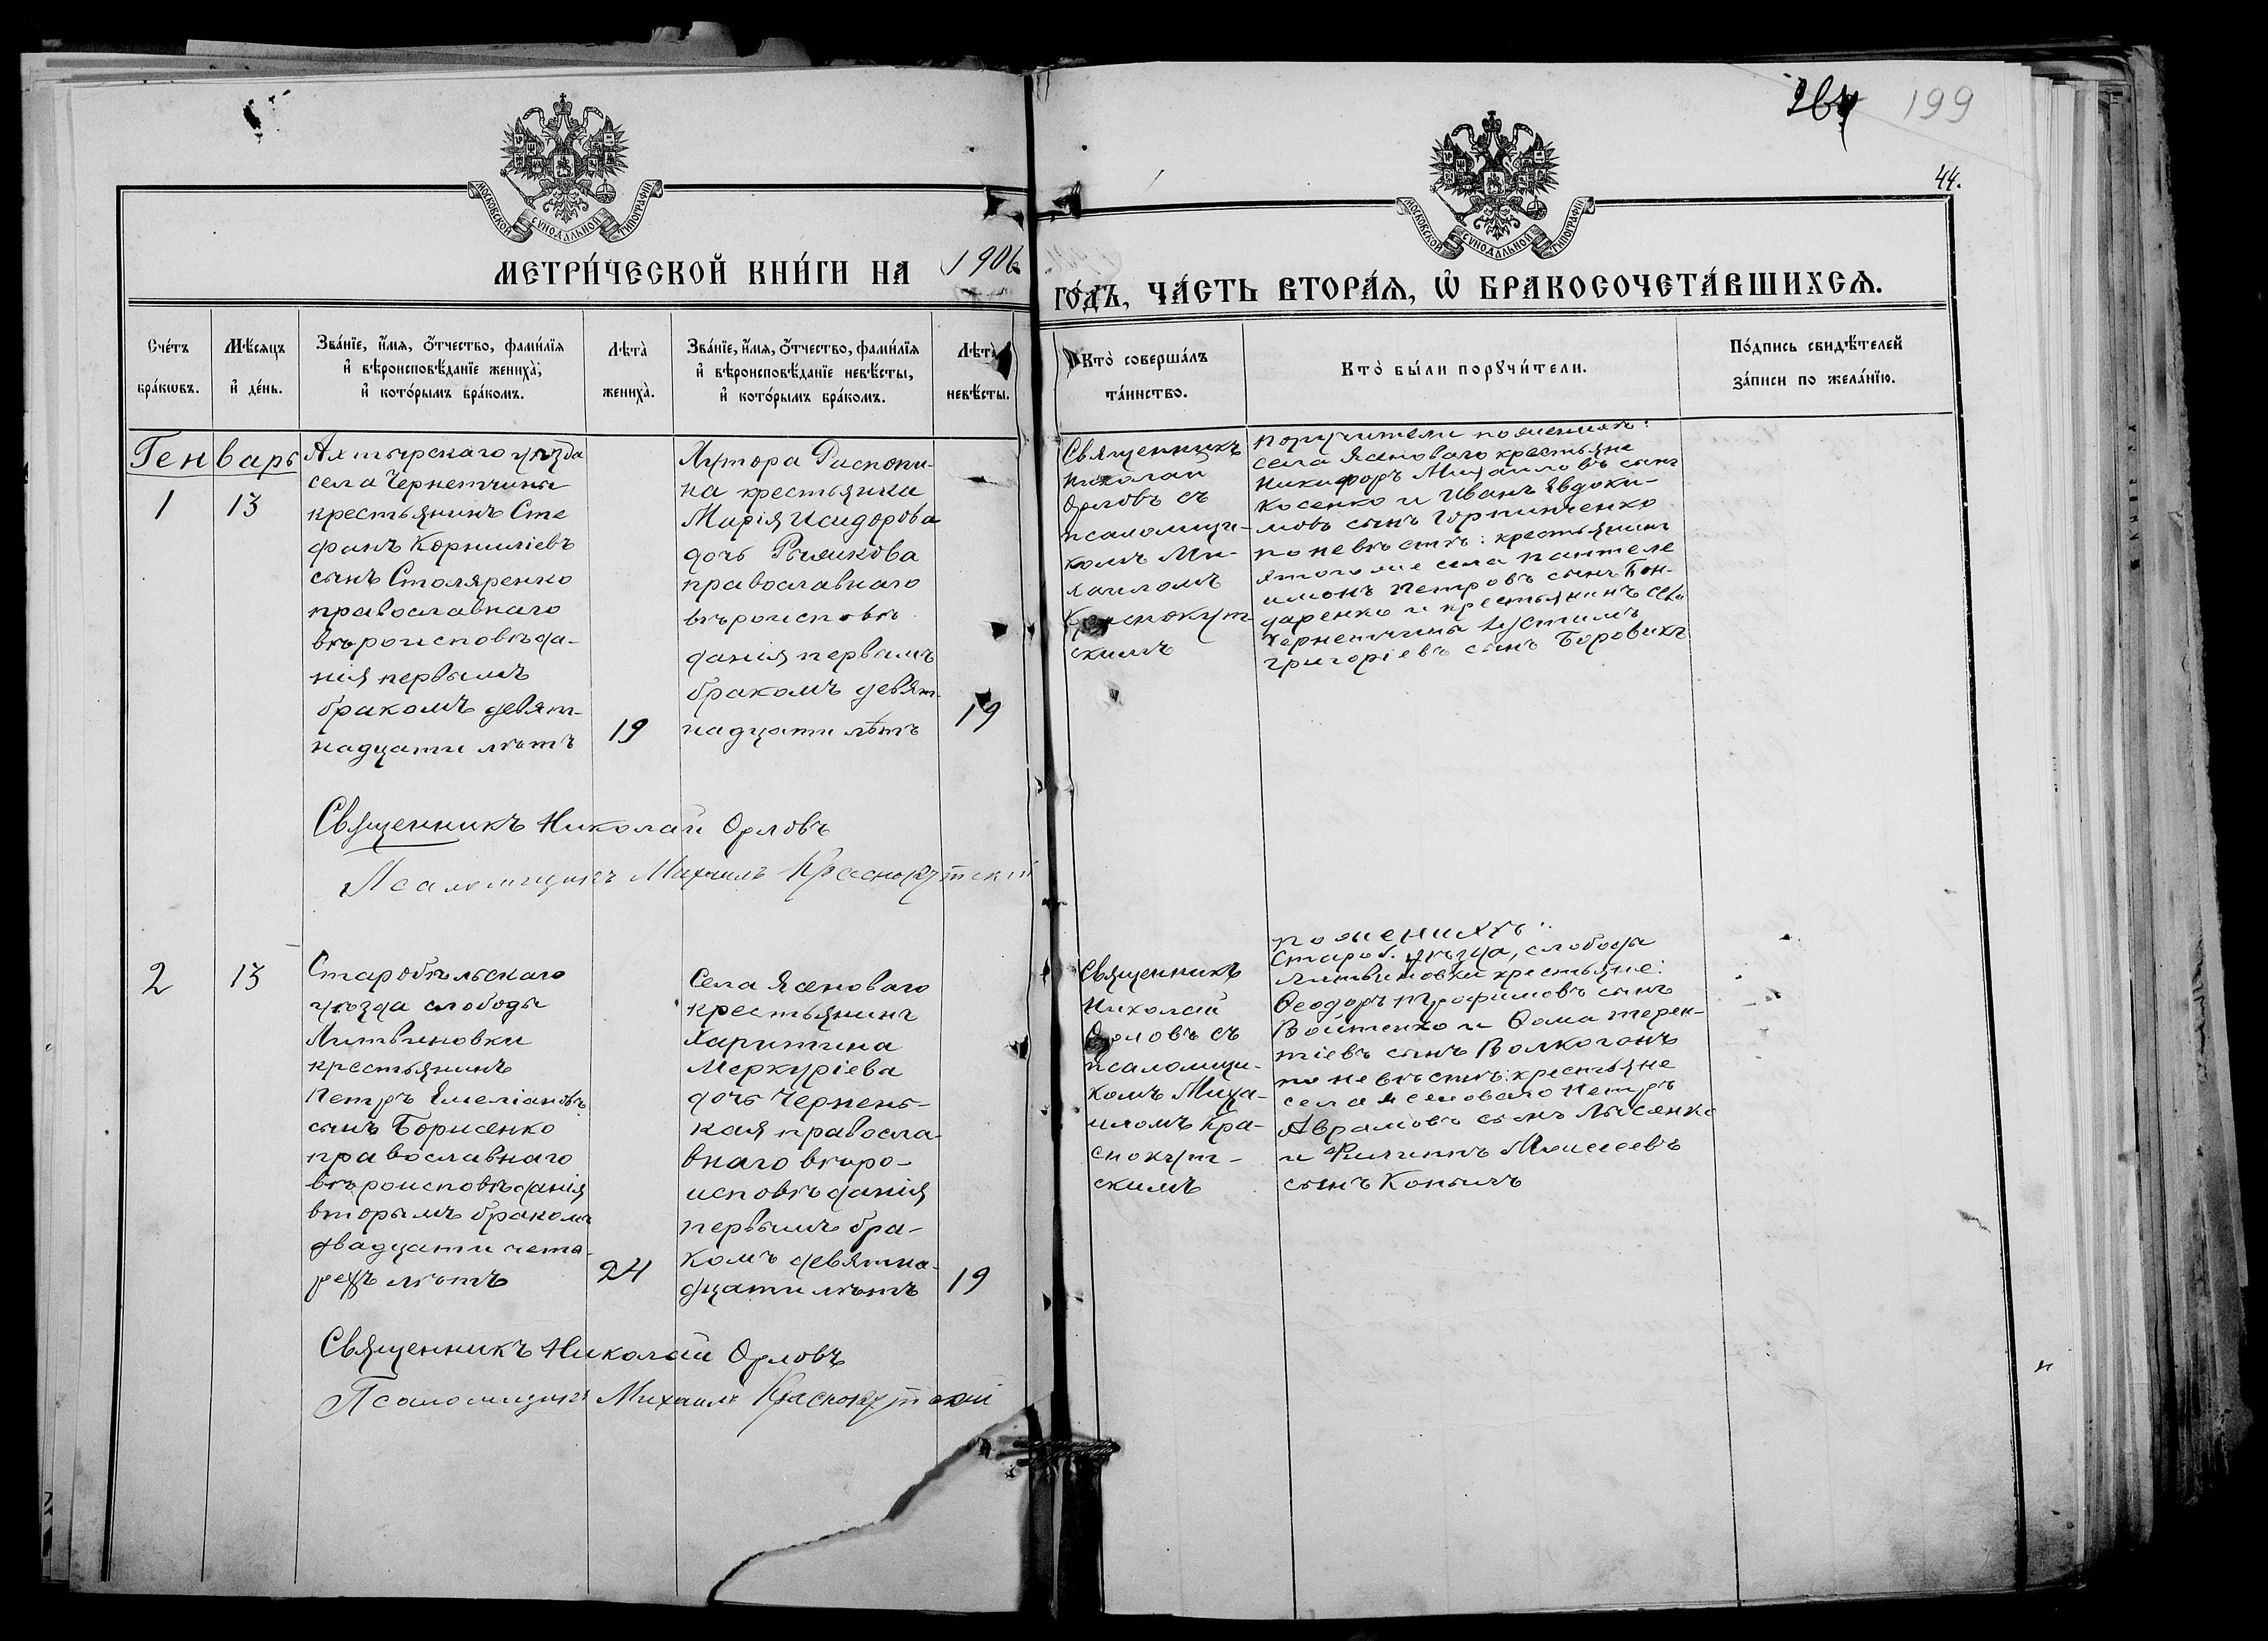 199
44.
МОСКОВСКОЙ СѴНОДАЛЬНОЙ ТИПОГРАФІИ
МОСКОВСКОЙ СѴНОДАЛЬНОЙ ТИПОГРАФІИ
МЕТРИ́ЧЕСКОЙ КНИ́ГИ НА 1906
ГО́ДЪ, ЧА́СТЬ ВТОРА́Ѧ, Ѡ҆ БРАКОСОЧЕТА́ВШИХСѦ.
Сче́тъ
бра́кѡвъ.
Мѣ́сяцъ
и҆ де́нь.
Зва́нїе, и҆́мя, ѻ҆́тчество, фами́лїя
и҆ вѣроисповѣ́данїе жениха̀,
и҆ кото́рымъ бра́комъ.
Лѣта̀
жениха̀.
Зва́нїе, и҆́мя, ѻ҆́тчество, фами́лїя
и҆ вѣроисповѣ́данїе невѣ́сты,
и҆ кото́рымъ бра́комъ.
Лѣта̀
невѣ́сты.
Кто̀ соверша́лъ
та́инство.
Кто̀ бы́ли порꙋчи́тели.
По́дпись свидѣ́телей
за́писи по жела́нїю.
Генварь
1
13
Ахтырскаго уѣзда
села Чернетчины
крестьянинъ Сте
фанъ Корниліевъ
сынъ Столяренко
православнаго
вѣроисповѣда-
нія первымъ
бракомъ девят-
надцати лѣтъ
19
Хутора
на крестьянка
Марія Исидорова
дочь Рышкова
православнаго
вѣроисповѣ
данія первымъ
бракомъ девят-
надцати лѣтъ
19
Священникъ
Николай
Орловъ съ
псаломщи-
комъ Ми-
хаиломъ
Краснокут-
скимъ
Поручители по женихѣ:
села Ясеноваго крестьяне
Никифоръ Михаиловъ сынъ
Косенко и Иванъ Евдоки-
мовъ сынъ Горпинченко
по невѣстѣ: крестьянинъ
этого же села Пантеле
имонъ Петровъ сынъ Бон-
даренко и крестьянинъ села
Чернетчины Іустинъ
Григоріевъ сынъ Боровикъ
Священникъ Николай Орловъ
Псаломщикъ Михаилъ Краснокутскій
2
13
Старобѣльскаго
уѣзда слободы
Литвиновки
крестьянинъ
Петръ Емеліановъ
сынъ Борисенко
православнаго
вѣроисповѣданія
вторымъ бракомъ
двадцати четы-
рехъ лѣтъ
24
Села Ясеноваго
крестьянинъ
Харитина
Меркуріева
дочь Чернень-
кая правосла-
внаго вѣро-
исповѣданія
первымъ бра-
комъ девятна-
дцати лѣтъ
19
Священникъ
Николай
Орловъ съ
псаломщи-
комъ Миха-
иломъ Кра-
снокут-
скимъ
по женихѣ:
Староб. уѣзда, слободы
Литвиновки крестьяне:
Ѳеодоръ Трофимовъ сынъ
Войтенко и Ѳома Терен-
тіевъ сынъ Волкогонъ
по невѣстѣ: крестьяне
села Ясеноваго Петръ
Аврамовъ сынъ Лысенко
и Филиппъ Моисеевъ
сынъ Копылъ
Священникъ Николай Орловъ
Псаломщикъ Михаилъ Краснокутскій